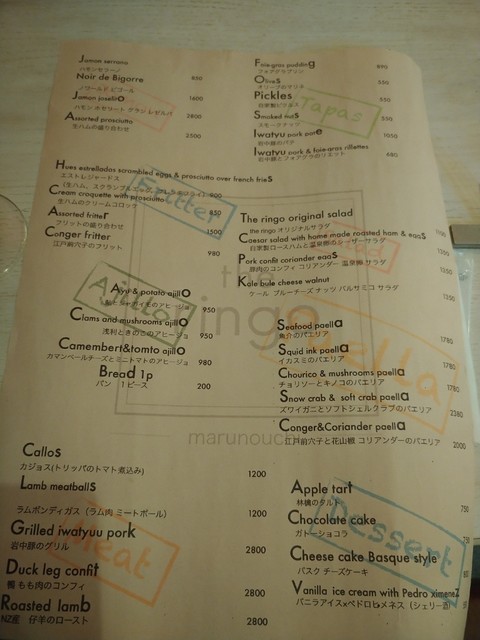 Jamon serrano
ハモンセラーノ
Noir de Bigorre 850
ノワールド ビゴール
Jamon joselito 1600
ハモン ホセリート グラン レゼルバ
Assorted prosciutto 2800
生ハムの盛り合わせ 2500
Foie-gras pudding 890
フォアグラプリン
Olives 550
オリーブのマリネ
Pickles 450
自家製ピクルス
Smoked nuts 550
スモークナッツ
Iwatyu pork pate 1050
岩中豚のパテ
Iwatyu pork & foie-gras rillettes 680
岩中豚とフォアグラのリエット
Tapas
Hues estrellados scrambled eggs & prosciutto over french fries
エストレジャードス
(生ハム、スクランブルエッグ、フレンチフライ) 900
Cream croquette with prosciutto
生ハムのクリームコロッケ 850
Assorted fritter
フリットの盛り合わせ 1500
Conger fritter
江戸前穴子のフリット 980
Fritter
The ringo original salad
the ringo オリジナルサラダ
Caesar salad with home made roasted ham & eggs
自家製ロースハムと温泉卵のシーザーサラダ
Pork confit coriander eggs
豚肉のコンフィ コリアンダー 温泉卵 サラダ 1350
Kale bule cheese walnut
ケール ブルーチーズ ナッツ バルサミコ サラダ
1250
Ajillo
Ayu & potato ajillo
鮎とじゃがいものアヒージョ 950
Clams and mushrooms ajillo
浅利ときのこのアヒージョ 950
Camembert&tomto ajillo
カマンベールチーズとミニトマトのアヒージョ 980
Bread 1p
パン 1ピース 200
the
ringo
marunouchi
Paella
Seafood paella
魚介のパエリア 1780
Squid ink paella
イカスミのパエリア 1780
Chourico & mushroom paella
チョリソーとキノコのパエリア 1780
Snow crab & soft crab paella
ズワイガニとソフトシェルクラブのパエリア 2380
Conger&Coriander paella
江戸前穴子と花山椒 コリアンダーのパエリア 2000
Callos
カジョス(トリッパのトマト煮込み) 1200
Lamb meatballs
アルボンディガス (ラム肉 ミートボール) 1200
Grilled iwatyuu pork
岩中豚のグリル 2800
Duck leg confit
鴨 もも肉のコンフィ 2800
Roasted lamb
NZ産 仔羊のロースト 2800
Meat
Apple tart
林檎のタルト 750
Chocolate cake
ガトーショコラ
Cheese cake Basque style
バスク チーズケーキ
Vanilla ice cream with Pedro ximenez
バニラアイス×ペドロヒメネス (シェリー酒)
Dessert